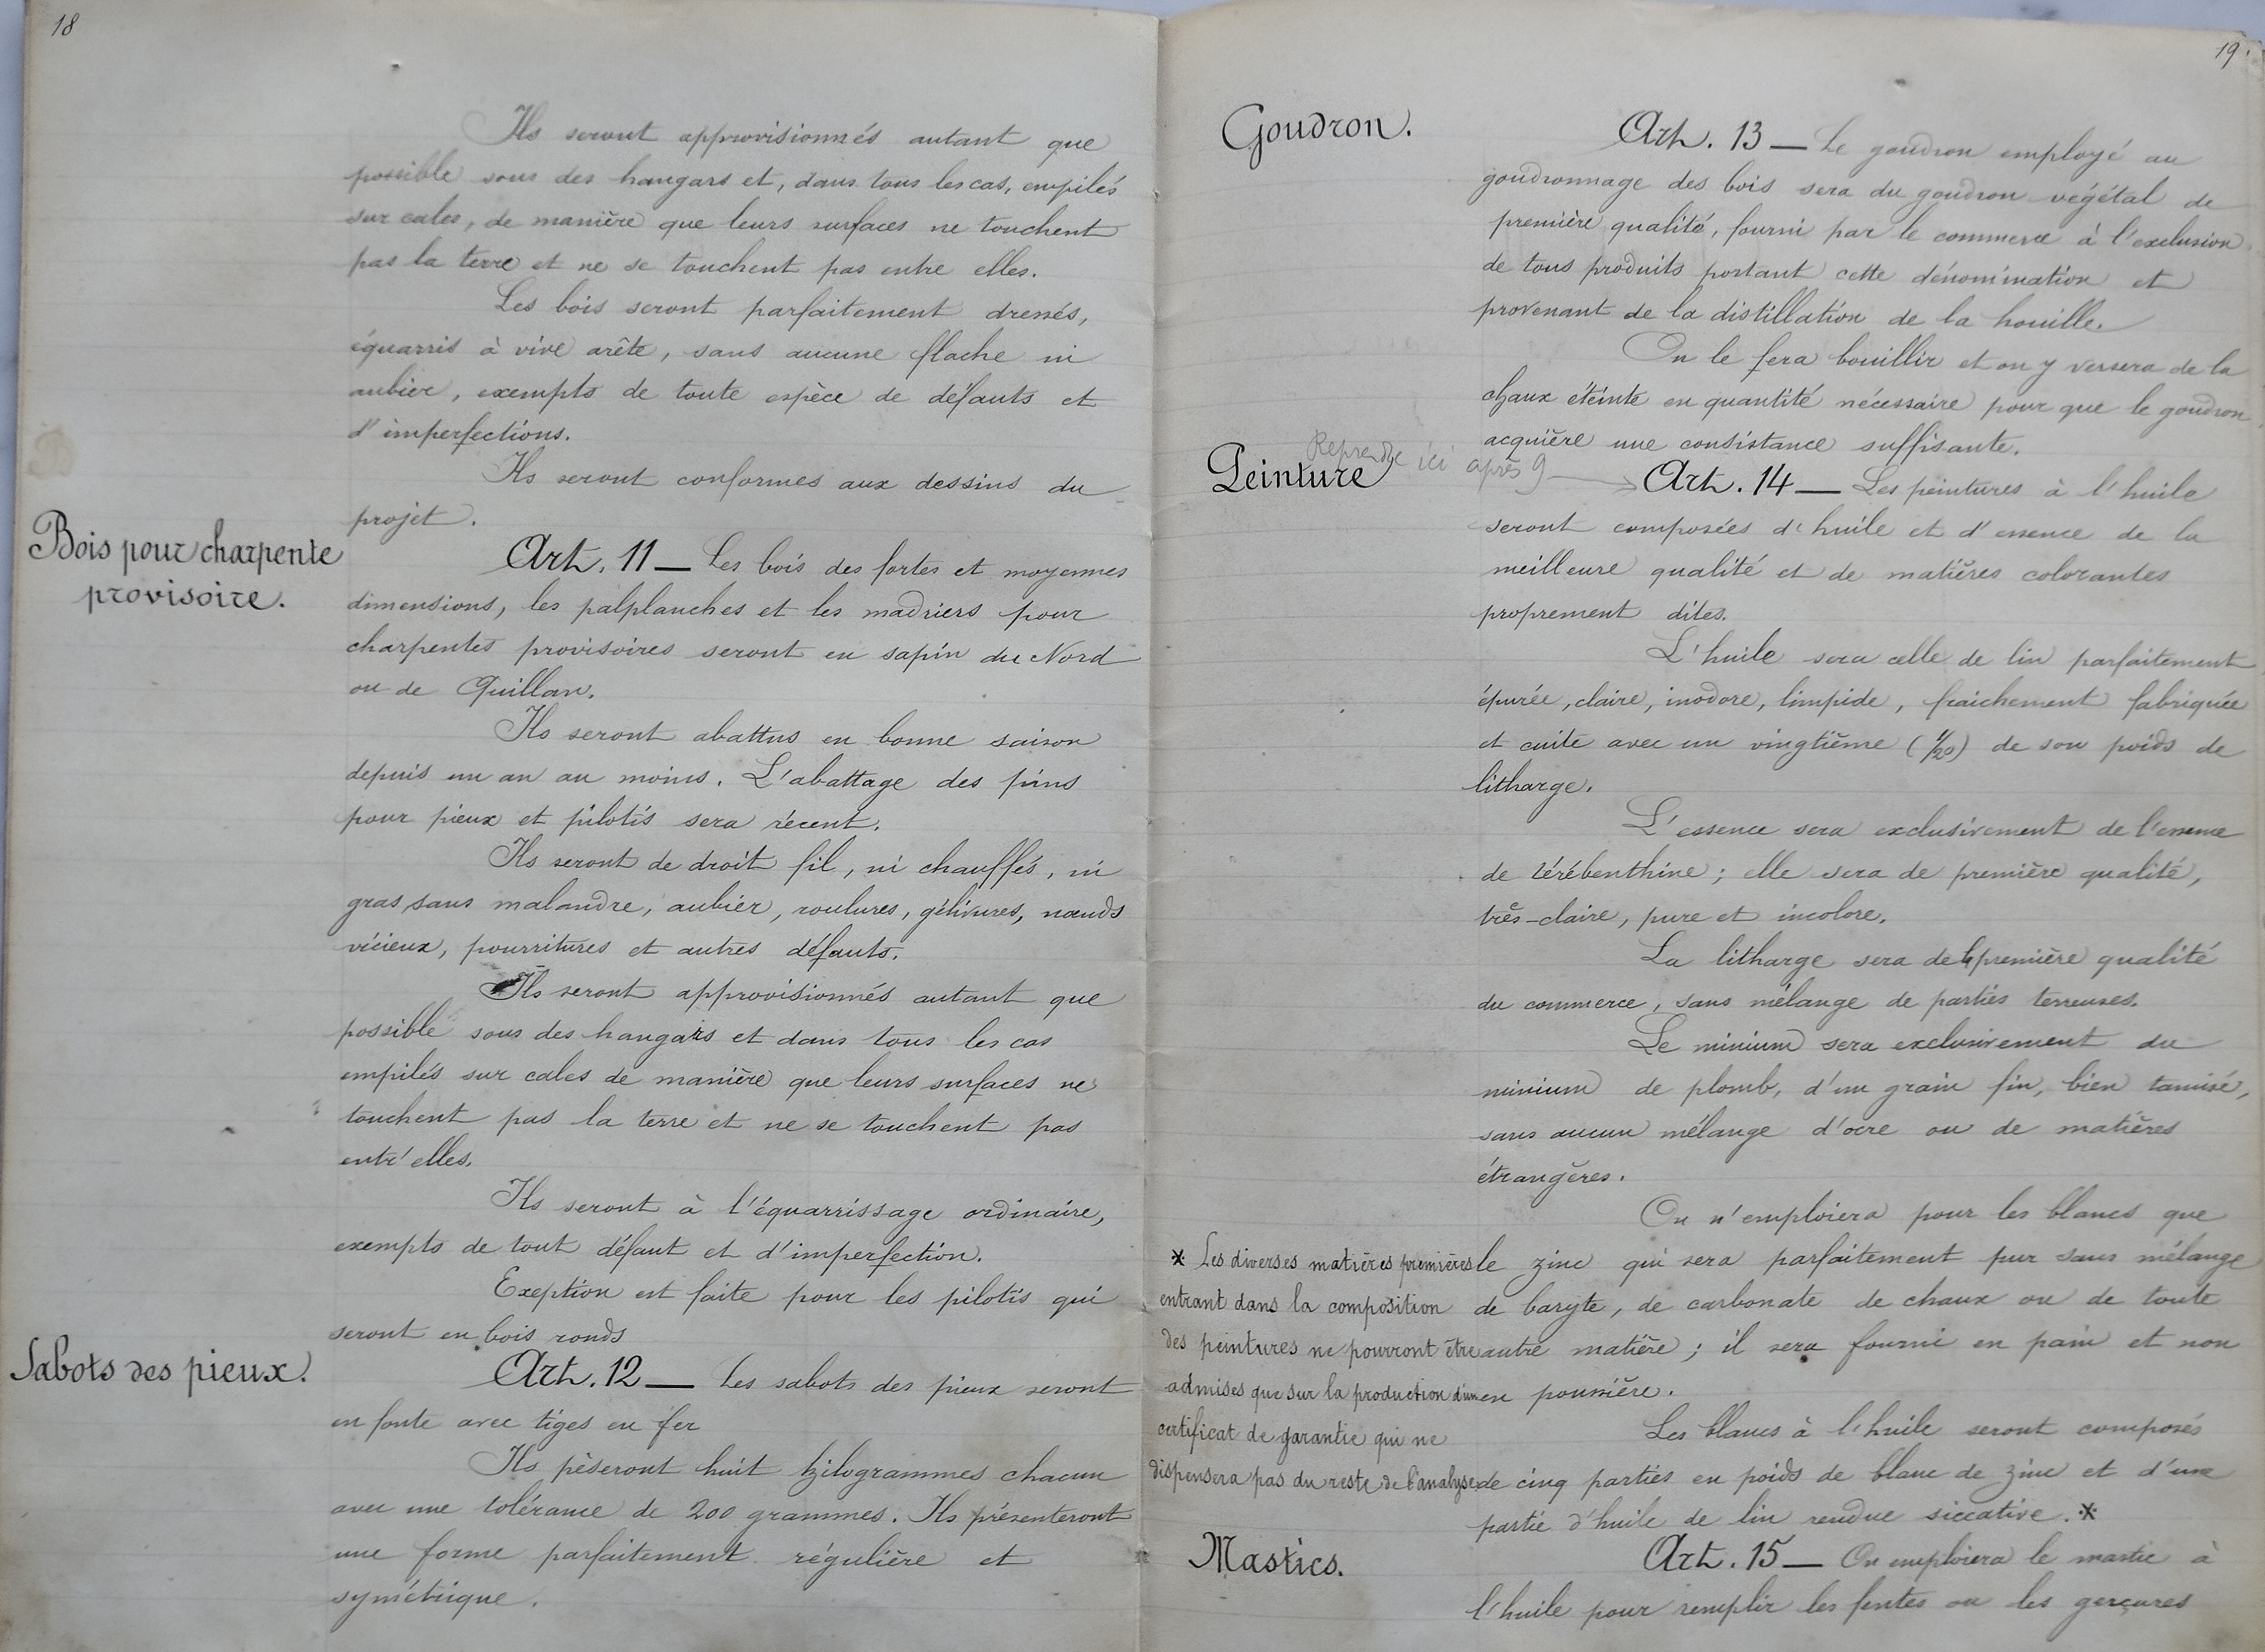 18
Ils seront approvisionnés autant que
possible sous des hangars et, dans tous les cas, empilés
sur cales, de manière que leurs surfaces ne touchent
pas la terre et ne se touchent pas entre elles.
Les bois seront parfaitement dressés,
équarris à vive arête, sans aucune flache ni
aubier, exempts de toute espèce de défauts et
d'imperfections.
Ils seront conformes aux dessins du
projet.
Bois pour charpente
provisoire.
Art. 11 — Les bois des fortes et moyennes
dimensions, les palplanches et les madriers pour
charpentes provisoires seront en sapin du Nord
ou de Quillan.
Ils seront abattus en bonne saison
depuis un an au moins. L'abattage des pins
pour pieux et pilotis sera récent.
Ils seront de droit fil, ni chauffés, ni
gras, sans malandre, aubier, roulures, gélivures, nœuds
vicieux, pourritures et autres défauts.
Ils seront approvisionnés autant que
possible sous des hangars et dans tous les cas
empilés sur cales de manière que leurs surfaces ne
touchent pas la terre et ne se touchent pas
entr'elles.
Ils seront à l'équarrissage ordinaire,
exempts de tout défaut et d'imperfection.
Exeption est faite pour les pilotis qui
seront en bois ronds
Sabots des pieux.
Art. 12 — Les sabots des pieux seront
en fonte avec tiges en fer
Ils pèseront huit kilogrammes chacun
avec une tolérance de 200 grammes. Ils présenteront
une forme parfaitement régulière et
symétrique.
19.
Goudron.
Art. 13 — Le goudron employé au
goudronnage des bois sera du goudron végétal de
première qualité, fourni par le commerce à l'exclusion
de tous produits portant cette dénomination et
provenant de la distillation de la houille.
On le fera bouillir et on y versera de la
chaux éteinte en quantité nécessaire pour que le goudron
acquière une consistance suffisante.
Reprendre ici après 9
Peinture
Art. 14 — Les peintures à l'huile
seront composées d'huile et d'essence de la
meilleure qualité et de matières colorantes
proprement dites.
L'huile sera celle de lin parfaitement
épurée, claire, inodore, limpide, fraichement fabriquée
et cuite avec un vingtième (1/20) de son poids de
litharge.
L'essence sera exclusivement de l'essence
de térébenthine; elle sera de première qualité,
très-claire, pure et incolore.
La litharge sera de la première qualité
du commerce, sans mélange de parties terreuses.
Le minium sera exclusivement du
minium de plomb, d'un grain fin, bien tamisé,
sans aucun mélange d'ocre ou de matières
étrangères.
On n'emploiera pour les blancs que
le zinc qui sera parfaitement pur sans mélange
de baryte, de carbonate de chaux ou de toute
autre matière; il sera fourni en pain et non
en poussière.
Les blancs à l'huile seront composés
de cinq parties en poids de blanc de zinc et d'une
partie d'huile de lin rendue siccative. *
* Les diverses matières premières
entrant dans la composition
des peintures ne pourront être
admises que sur la production d'un
certificat de garantie qui ne
dispensera pas du reste de l'analyse
Mastics.
Art. 15 — On emploiera le mastic à
l'huile pour remplir les fentes ou les gerçures